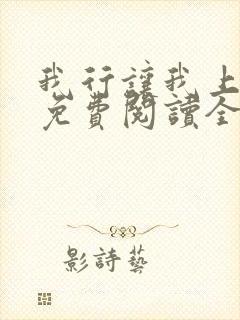 我行讓我上
免費閱讀全
影詩藝